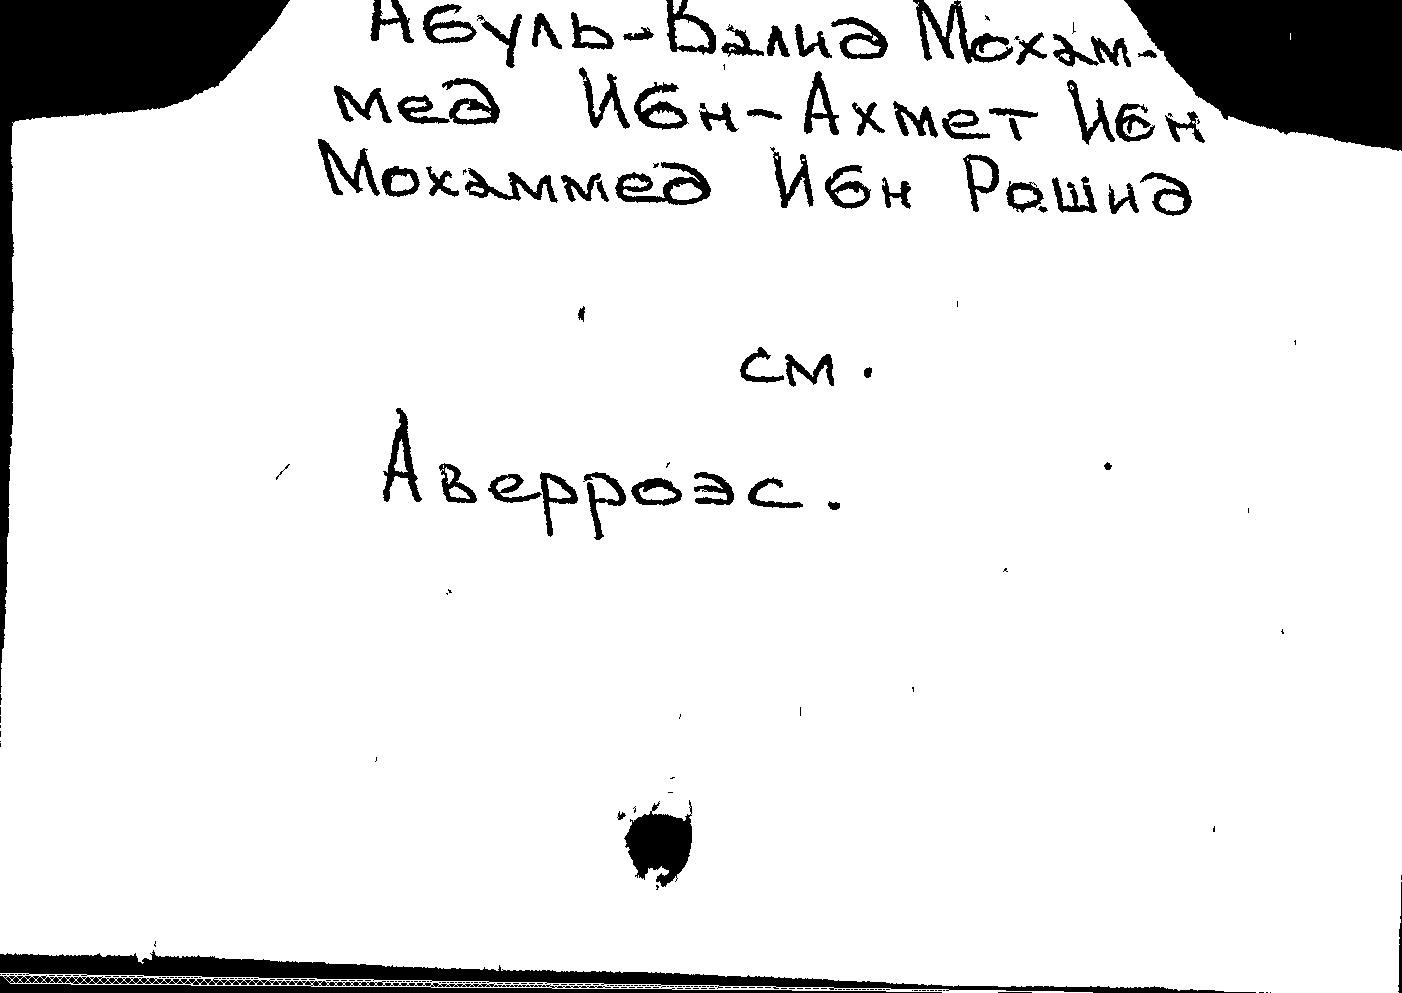 Абуль-Валид Мохам-
мед Ибн-Ахмет Ибн
Мохаммед Ибн Рашид
см.
Аверроэс.